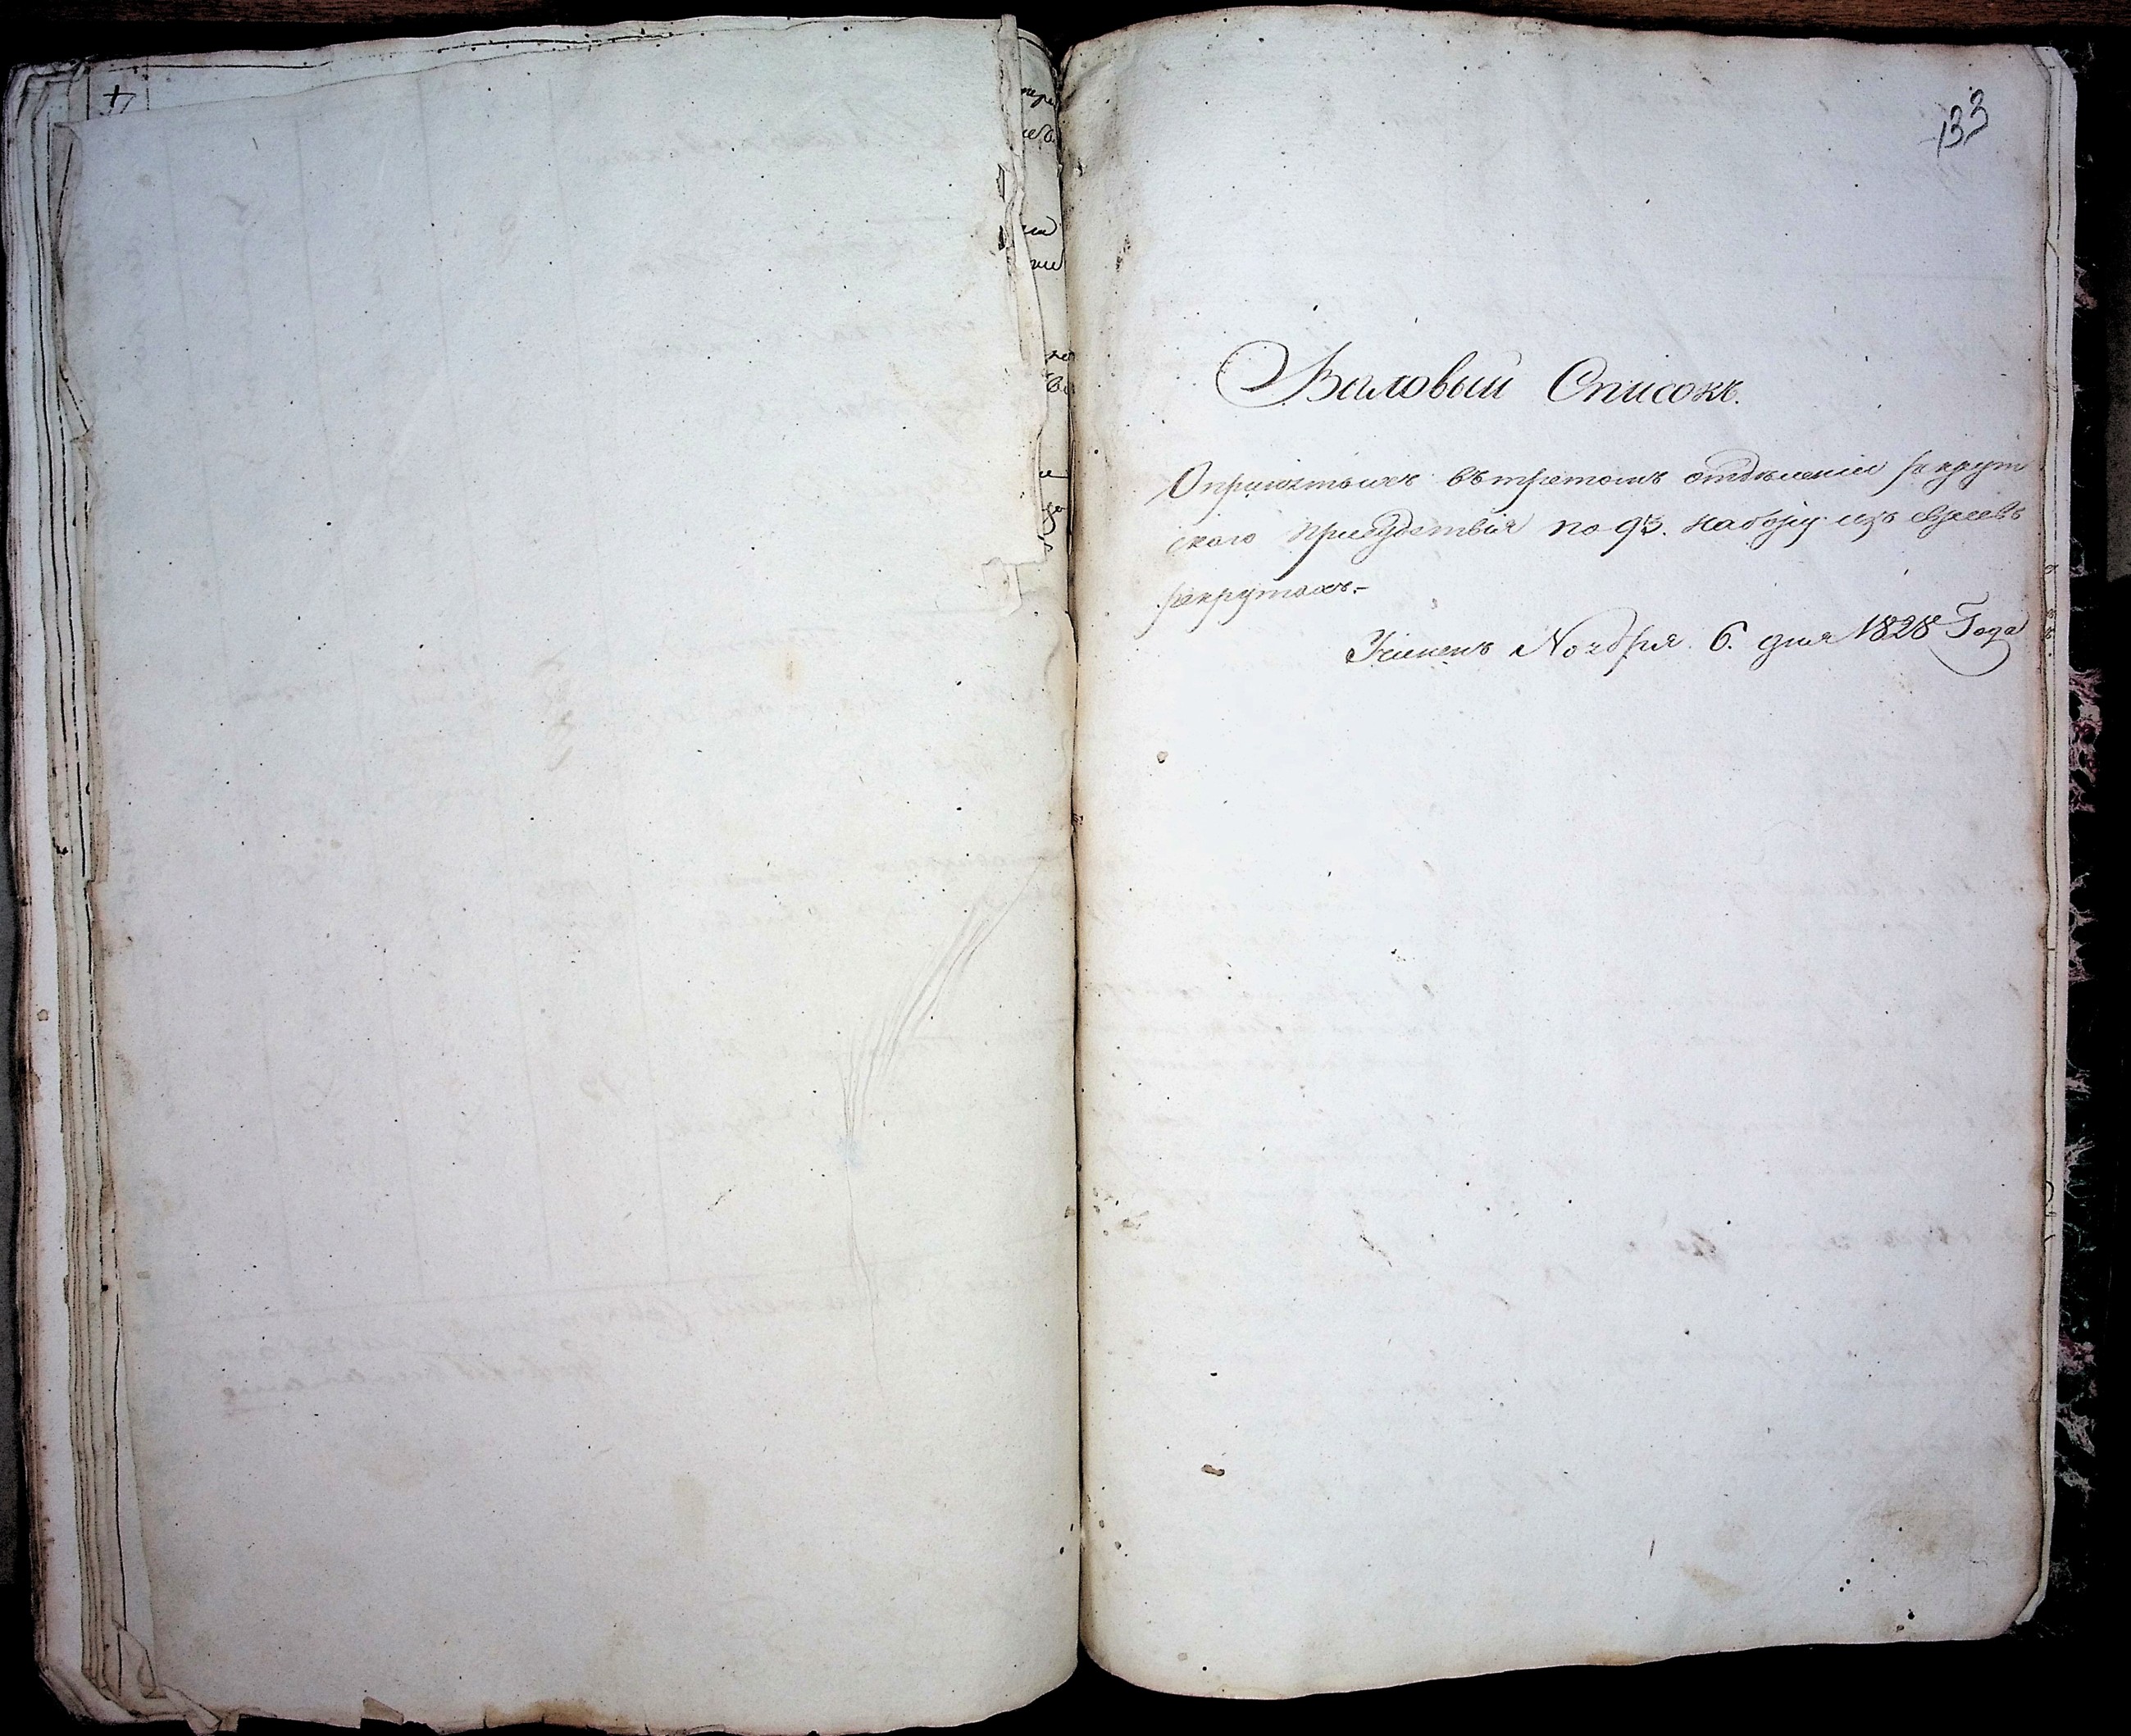 133
Валовый Списокъ.
О принятыхъ въ третомъ отделении рекрут
скаго присудствия по 93. набору изъ евреевъ
рекрутахъ.-
Учиненъ Ноября 6. дня 1828 Года